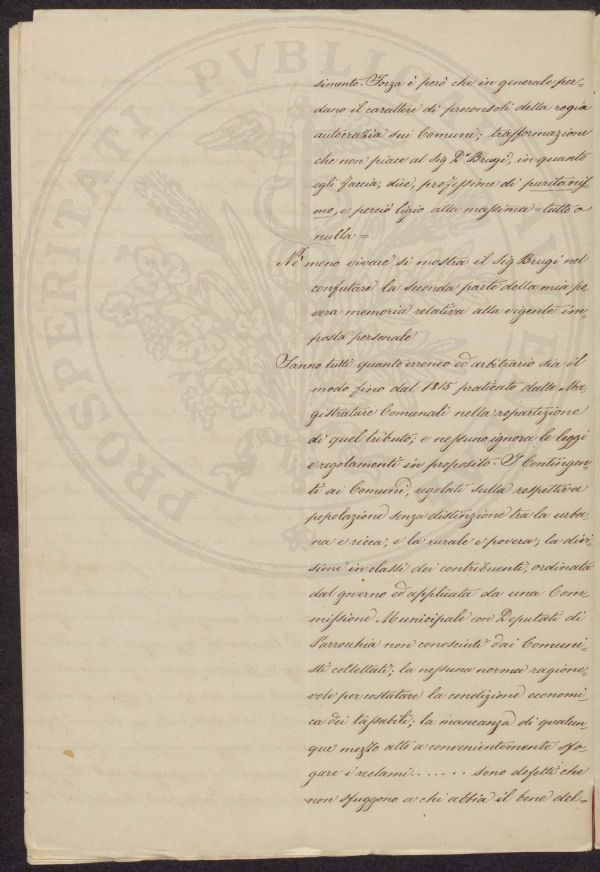 simento. Forza è però che in generale per-
dano il carattere di proconsoli della regia
autocrazia sui Comuni; trasformazione
che non piace al Sig D.r Brugi, in quanto
egli faccia, dice, professione di puritanis
mo, e perciò ligio alla massima = tutto o
nulla =
Nè meno vivace si mostra il Sig Brugi nel
confutare la seconda parte della mia po
vera memoria relativa alla vigente im-
posta personale
Sanno tutti quanto erroneo ed arbitrario sia il
modo fino dal 1815 praticato dalle Ma
gistrature Comunali nella repartizione
di quel tributo; e nessuno ignora le leggi
e regolamenti in proposito. I Contingen-
ti ai Comuni, regolati sulla respettiva
popolazione senza distinzione tra la urba
na e ricca, e la rurale e povera; la divi-
sione in classi dei contribuenti, ordinata
dal governo ed applicata da una Com-
missione Municipale con Deputati di
Parrochia non conosciuti dai Comuni-
sti collettati; la nessuna norma ragione-
vole per costatare la condizione economi-
ca dei tassabili; la mancanza di qualun-
que mezzo atto a convenientemente sfo-
gare i reclami . . . . . . sono difetti che
non sfuggono a chi abbia il bene del-
PROSPERITATI PVBLICAE